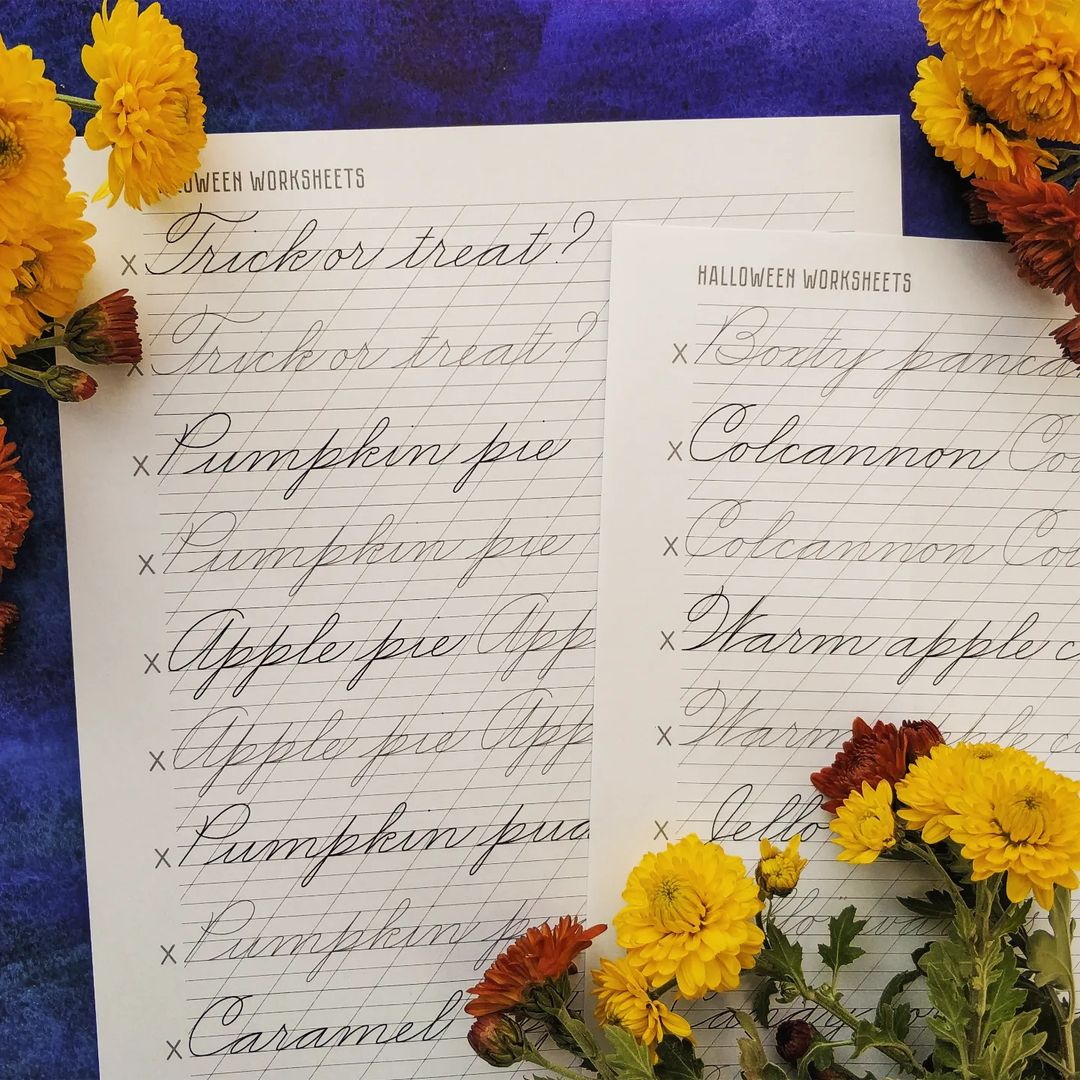 WORKSHEETS
x Trick or treat?
x Trick or treat?
x Pumpkin pie
x Pumpkin pie
x Apple pie App
x Apple pie App
x Pumpkin pud
x Pumpkin p
x Caramel
HALLOWEEN WORKSHEETS
x Boxty panca
x Colcannon Co
x Colcannon Col
x Warm apple c
x Warm apple c
x Jello